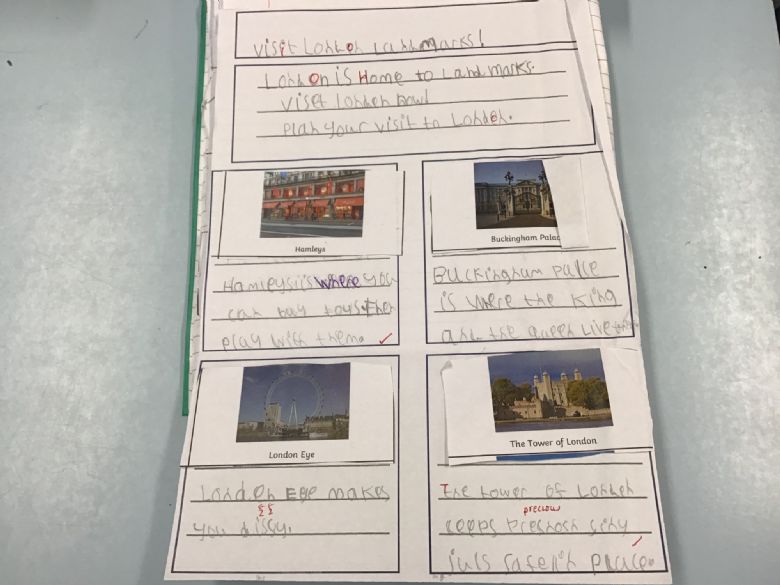 visit London Landmarks!
London is Home to Landmarks.
Viset london now!
Plan your visit to London.
Hamleys
Buckingham Palac
Hamleys is where you
can buy toys then
play with them.
Buckingham Palce
is where the King
and the queen Live
London Eye
The Tower of London
London Eye makes
you dissy.
zz
The tower of London
precious
ceeps
safe in Place.